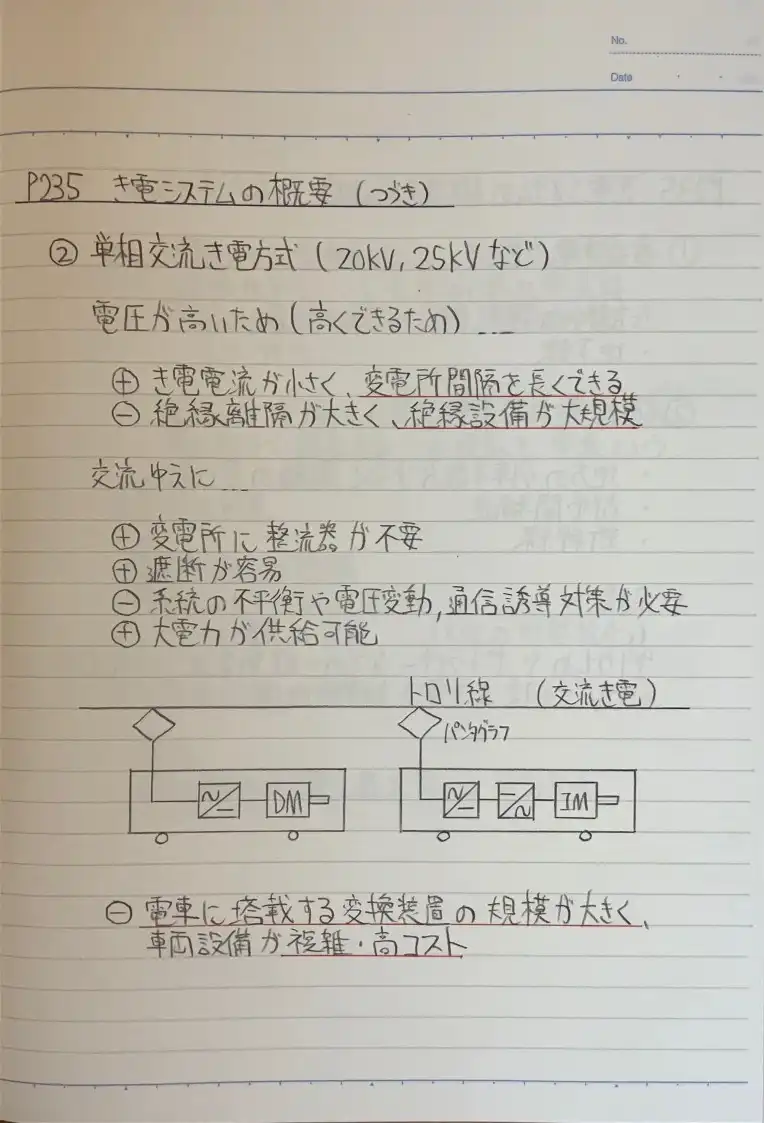 No.
Date
P235 き電システムの概要(つづき)
② 単相交流き電方式(20kV, 25kVなど)
電圧が高いため(高くできるため)...
⊕ き電電流が小さく、変電所間隔を長くできる
⊖ 絶縁離隔が大きく、絶縁設備が大規模
交流ゆえに...
⊕ 変電所に整流器が不要
⊕ 遮断が容易
⊖ 系統の不平衡や電圧変動,通信誘導対策が必要
⊕ 大電力が供給可能
トロリ線 (交流き電)
パンタグラフ
DM
IM
⊖ 電車に搭載する変換装置の規模が大きく、
車両設備が複雑・高コスト